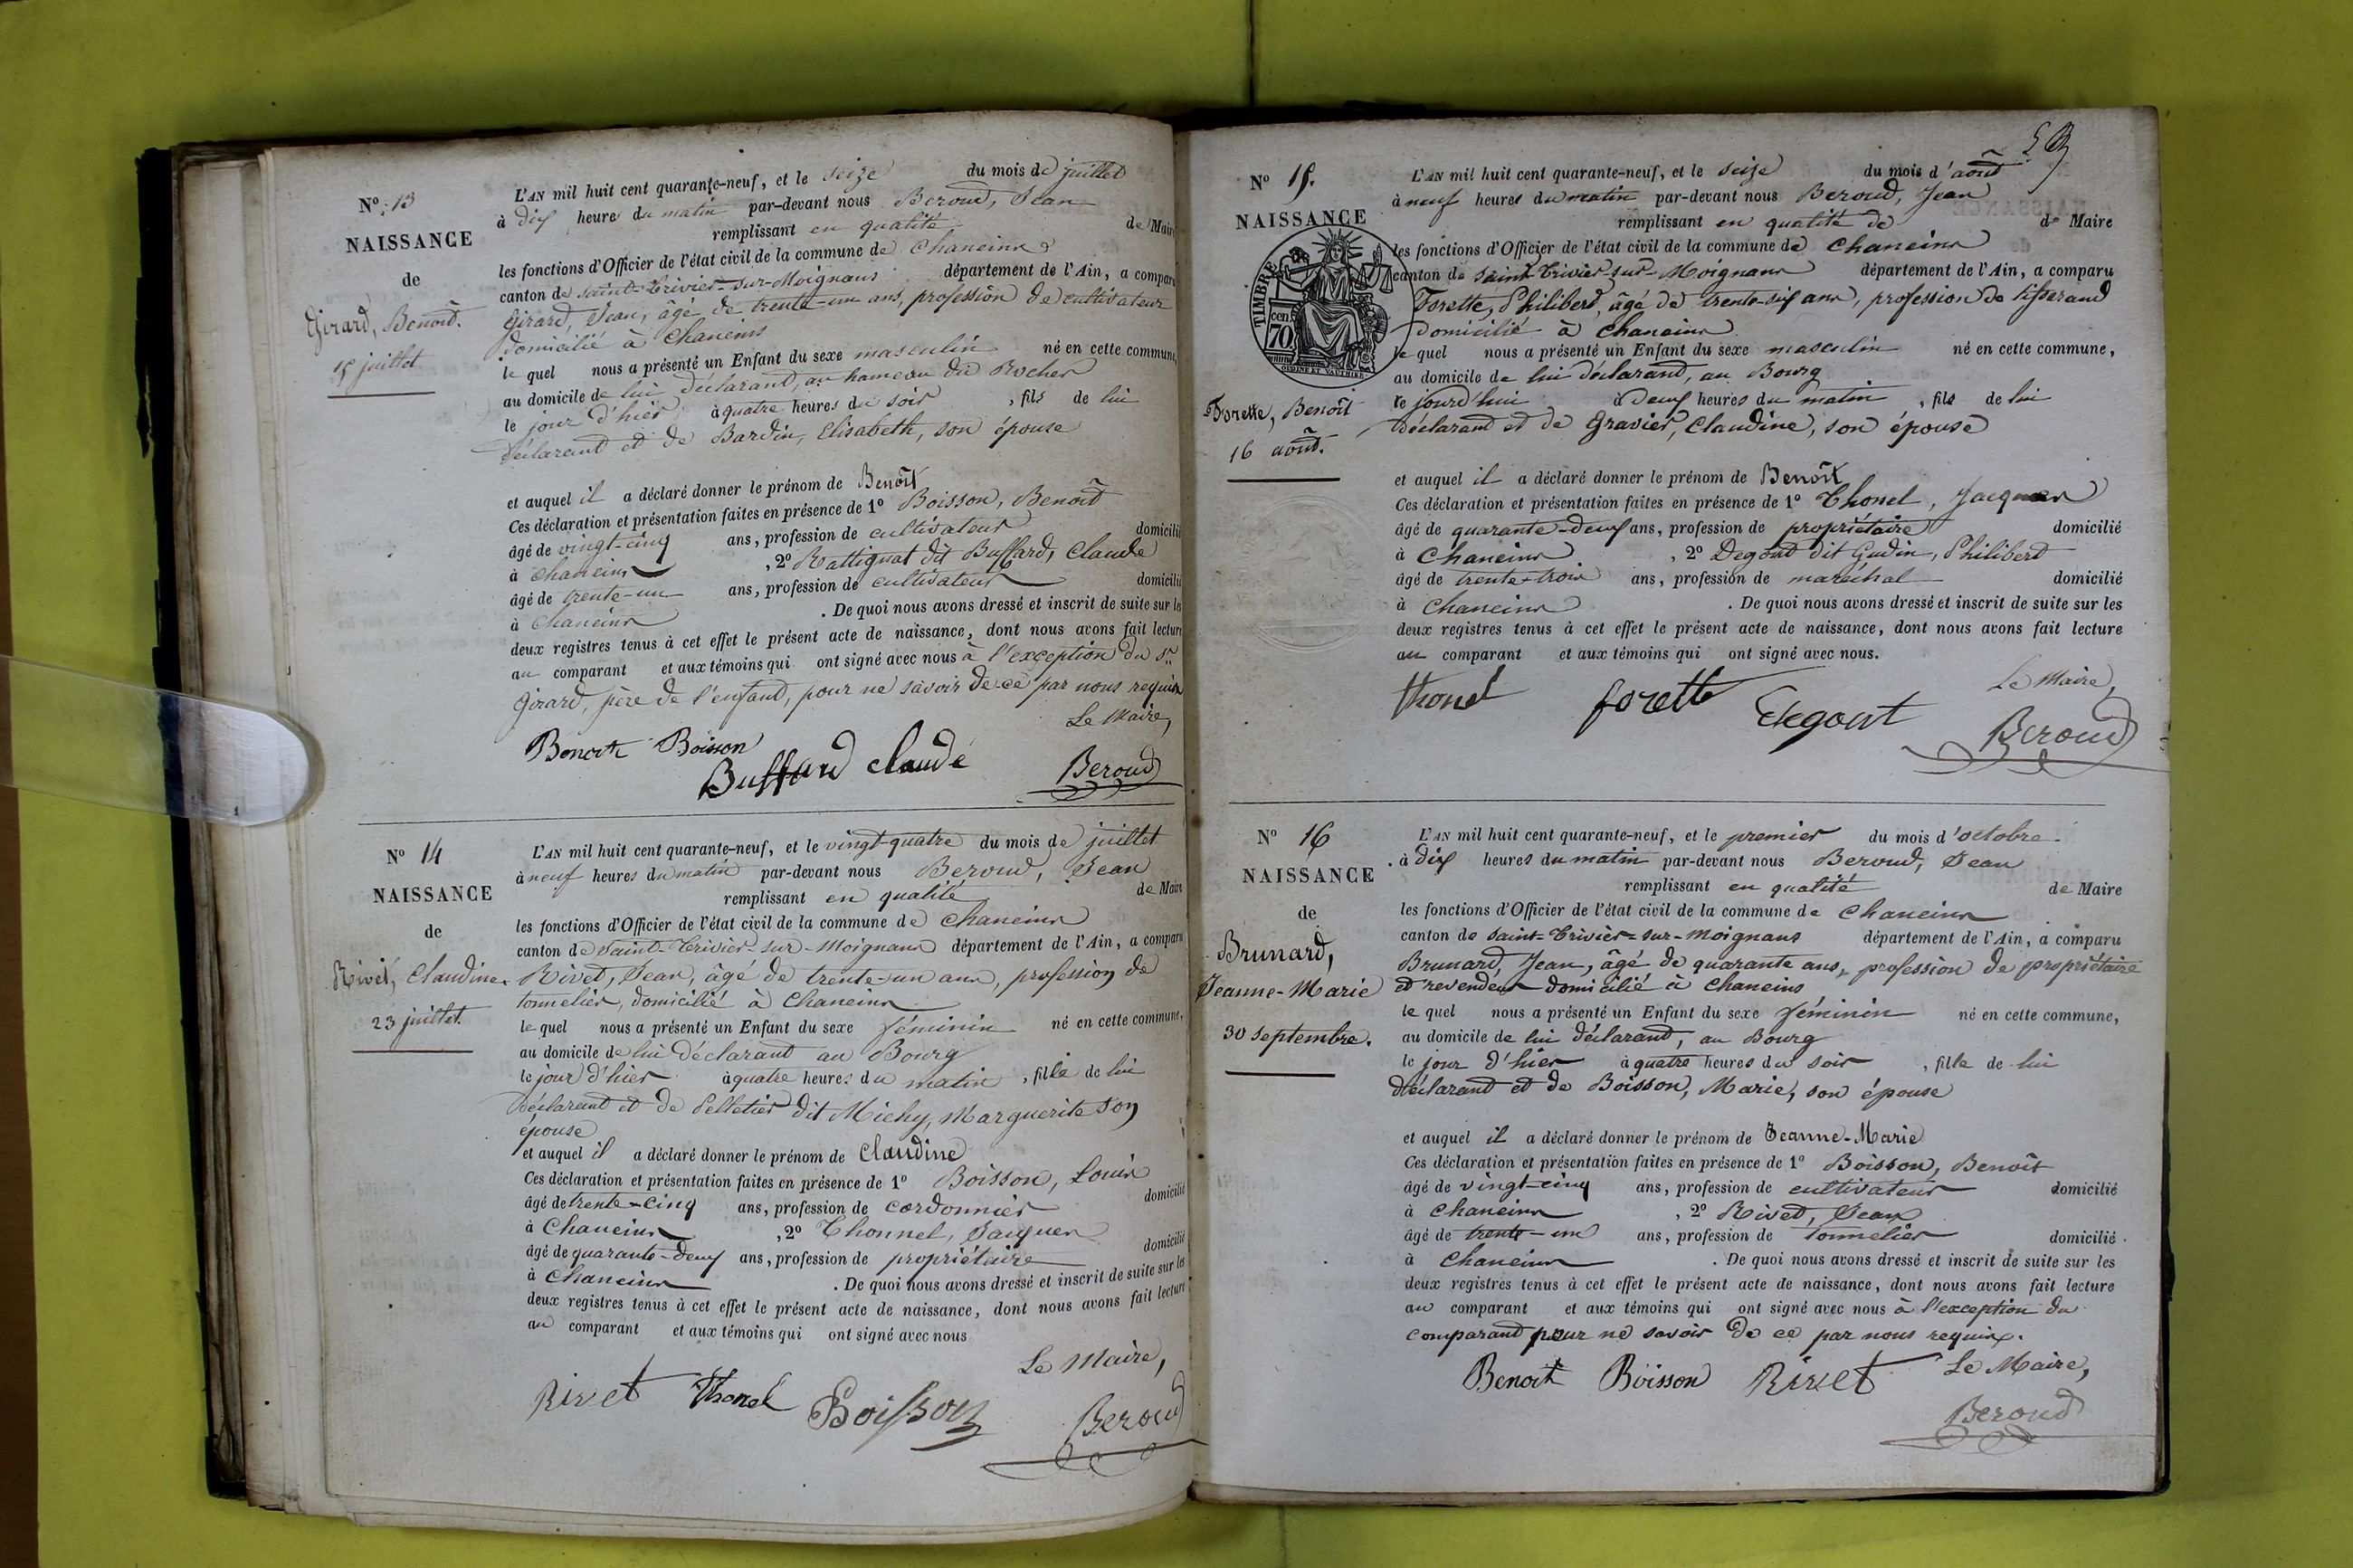 N° 13
NAISSANCE
de
Girard, Benoît.
15 juillet
L'AN mil huit cent quarante-neuf, et le seize du mois de juillet
à dix heures du matin par-devant nous Beroud, Jean
remplissant en qualité de Maire
les fonctions d'Officier de l'état civil de la commune de Chaneins
canton de saint-Trivier-sur-Moignans département de l'Ain, a comparu
Girard, Jean, âgé de trente-un ans, profession de cultivateur
domicilié à Chaneins
le quel nous a présenté un Enfant du sexe masculin né en cette commune,
au domicile de lui déclarant, au hameau du Rocher
le jour d'hier à quatre heures du soir, fils de lui
déclarant et de Bardin, Elisabeth, son épouse
et auquel il a déclaré donner le prénom de Benoît
Ces déclaration et présentation faites en présence de 1° Boisson, Benoît
âgé de vingt-cinq ans, profession de cultivateur domicilié
à Chaneins, 2° Rattignat dit Buffard, Claude
âgé de trente-un ans, profession de cultivateur domicilié
à Chaneins. De quoi nous avons dressé et inscrit de suite sur les
deux registres tenus à cet effet le présent acte de naissance, dont nous avons fait lecture
au comparant et aux témoins qui ont signé avec nous à l'exception du Sr
Girard, père de l'enfant, pour ne savoir de ce par nous requis
Le Maire,
Benoit Boisson
Buffard Claude
Beroud
N° 14
NAISSANCE
de
Rivet, Claudine.
23 juillet.
L'AN mil huit cent quarante-neuf, et le vingt-quatre du mois de juillet
à neuf heures du matin par-devant nous Beroud, Jean
remplissant en qualité de Maire
les fonctions d'Officier de l'état civil de la commune de Chaneins
canton de Saint-Trivier-sur-Moignans département de l'Ain, a comparu
Rivet, Jean, âgé de trente-un ans, profession de
tonnelier, domicilié à Chaneins
le quel nous a présenté un Enfant du sexe féminin né en cette commune,
au domicile de lui déclarant au Bourg
le jour d'hier à quatre heures du matin, fille de lui
déclarant et de Pelletier dit Michy, Marguerite son
épouse
et auquel il a déclaré donner le prénom de Claudine
Ces déclaration et présentation faites en présence de 1° Boisson, Louis
âgé de trente-cinq ans, profession de cordonnier domicilié
à Chaneins, 2° Thonnel, Jacques
âgé de quarante-deux ans, profession de propriétaire domicilié
à Chaneins. De quoi nous avons dressé et inscrit de suite sur les
deux registres tenus à cet effet le présent acte de naissance, dont nous avons fait lecture
au comparant et aux témoins qui ont signé avec nous
Le Maire,
Rivet Thonel Boisson
Beroud
N° 15.
NAISSANCE
TIMBRE
cen.
70
Forette, Benoît
16 août.
L'AN mil huit cent quarante-neuf, et le seize du mois d'août
à neuf heures du matin par-devant nous Beroud, Jean
remplissant en qualité de de Maire
les fonctions d'Officier de l'état civil de la commune de Chaneins
canton de saint-Trivier-sur-Moignans département de l'Ain, a comparu
Forette, Philibert, âgé de trente-six ans, profession de tisserand
domicilié à Chaneins
le quel nous a présenté un Enfant du sexe masculin né en cette commune,
au domicile de lui déclarant, au Bourg
le jourd'hui à deux heures du matin, fils de lui
déclarant et de Gravier, Claudine, son épouse
et auquel il a déclaré donner le prénom de Benoît
Ces déclaration et présentation faites en présence de 1° Thonel, Jacques
âgé de quarante-deux ans, profession de propriétaire domicilié
à Chaneins, 2° Degout dit Gudin, Philibert
âgé de trente-trois ans, profession de maréchal domicilié
à Chaneins. De quoi nous avons dressé et inscrit de suite sur les
deux registres tenus à cet effet le présent acte de naissance, dont nous avons fait lecture
au comparant et aux témoins qui ont signé avec nous.
Le Maire,
Thonel forette Degout
Beroud
N° 16
NAISSANCE
de
Brunard,
Jeanne-Marie
30 septembre.
L'AN mil huit cent quarante-neuf, et le premier du mois d'octobre.
à dix heures du matin par-devant nous Beroud, Jean
remplissant en qualité de Maire
les fonctions d'Officier de l'état civil de la commune de Chaneins
canton de saint-Trivier-sur-Moignans département de l'Ain, a comparu
Brunard, Jean, âgé de quarante ans, profession de propriétaire
et revendeur domicilié à Chaneins
le quel nous a présenté un Enfant du sexe féminin né en cette commune,
au domicile de lui déclarant, au Bourg
le jour d'hier à quatre heures du soir, fille de lui
déclarant et de Boisson, Marie, son épouse
et auquel il a déclaré donner le prénom de Jeanne-Marie
Ces déclaration et présentation faites en présence de 1° Boisson, Benoît
âgé de vingt-cinq ans, profession de cultivateur domicilié
à Chaneins, 2° Rivet, Jean
âgé de trente-un ans, profession de tonnelier domicilié
à Chaneins. De quoi nous avons dressé et inscrit de suite sur les
deux registres tenus à cet effet le présent acte de naissance, dont nous avons fait lecture
au comparant et aux témoins qui ont signé avec nous à l'exception du
comparant pour ne savoir de ce par nous requis.
Benoit Boisson Rivet Le Maire,
Beroud